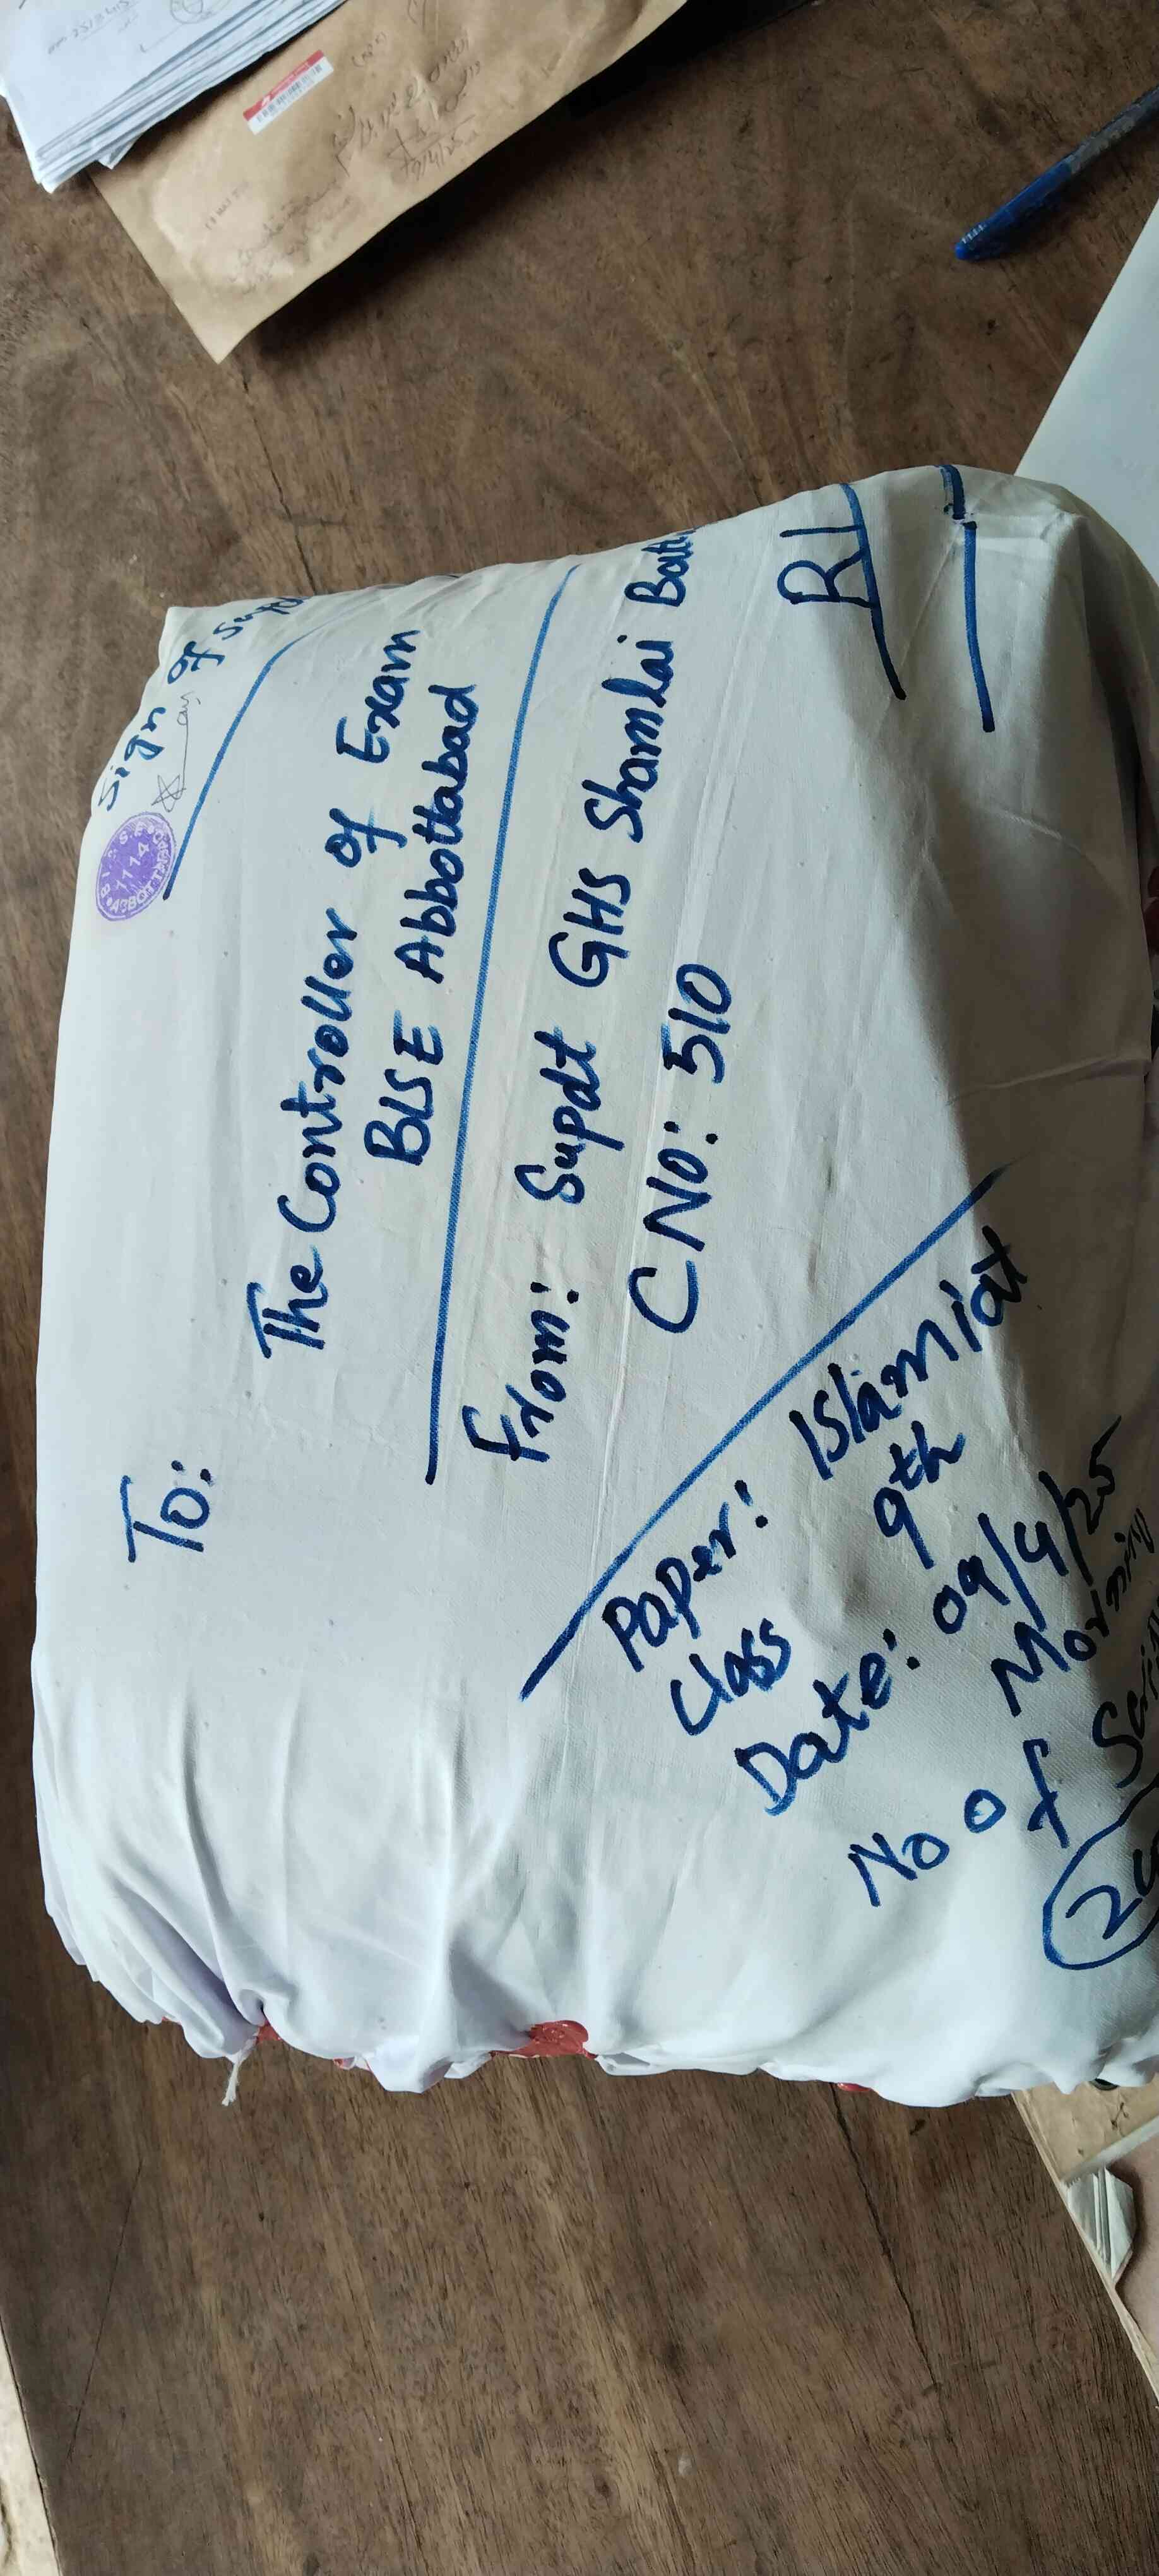 Sign of Supd
B.I.S.E.
1114
ABBOTTABAD
To:
The Controller of Exam
BISE Abbottabad
From: Supdt GHS Shamlai Batt
CNo: 510
RL
Paper: Islamiat
Class 9th
Date: 09/4/25
Morning
No of